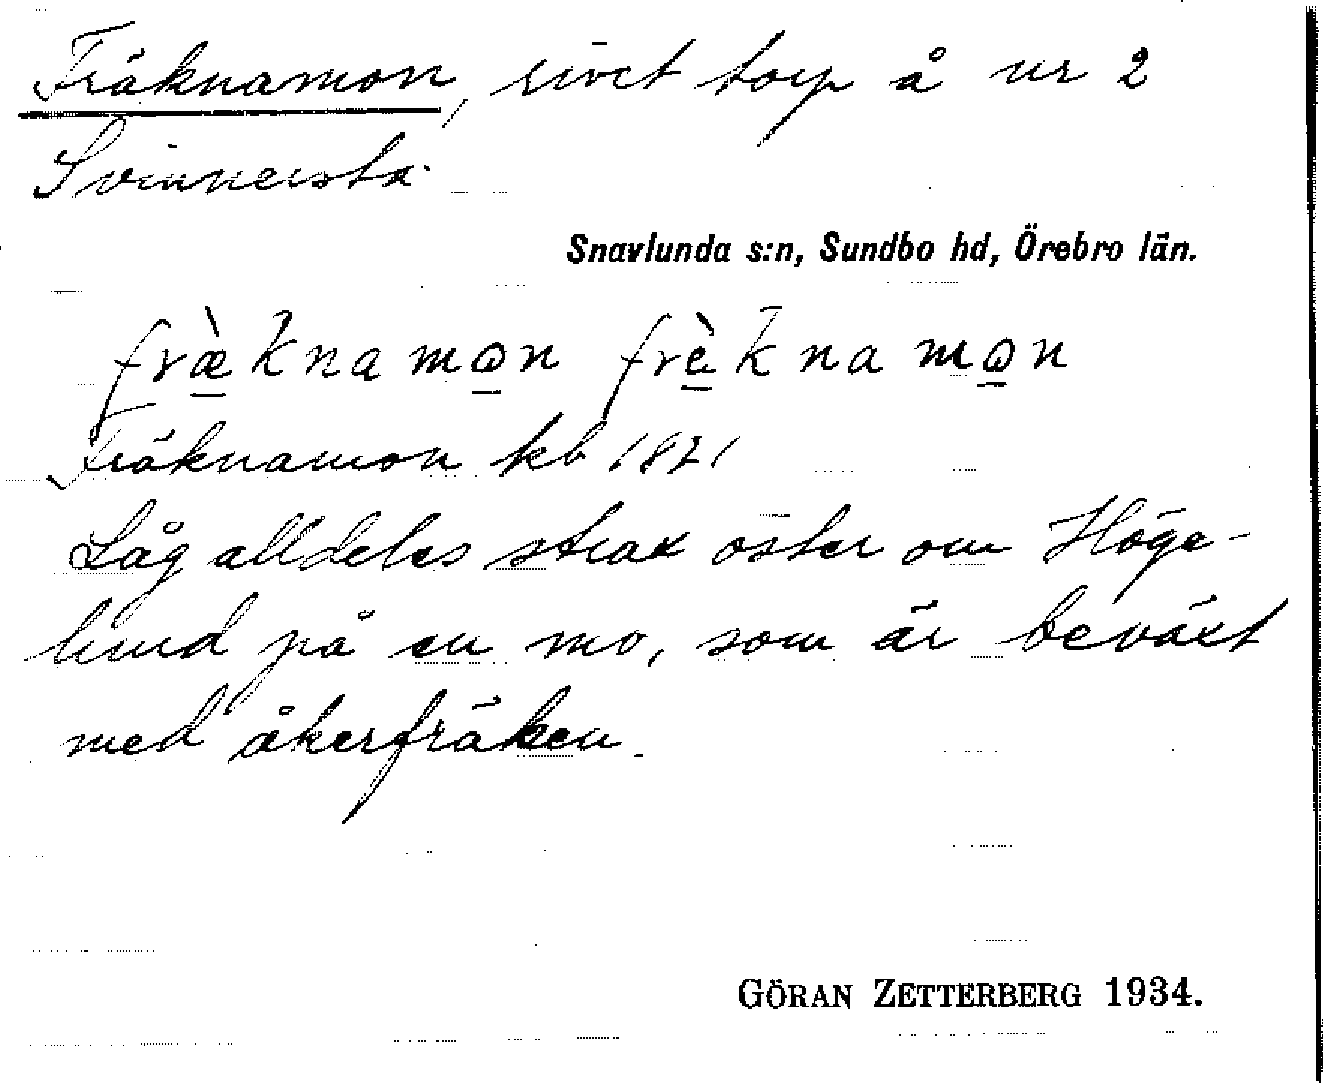 Fräknamon, rivet torp å nr 2
Svinnersta.
Snavlunda s:n, Sundbo hd, Örebro län.
fræ̀knamon frèknamon
Fräknamon kb 1821
Låg alldeles strax öster om Höge-
lund på en mo, som är beväxt
med åkerfräken.
GÖRAN ZETTERBERG 1934.